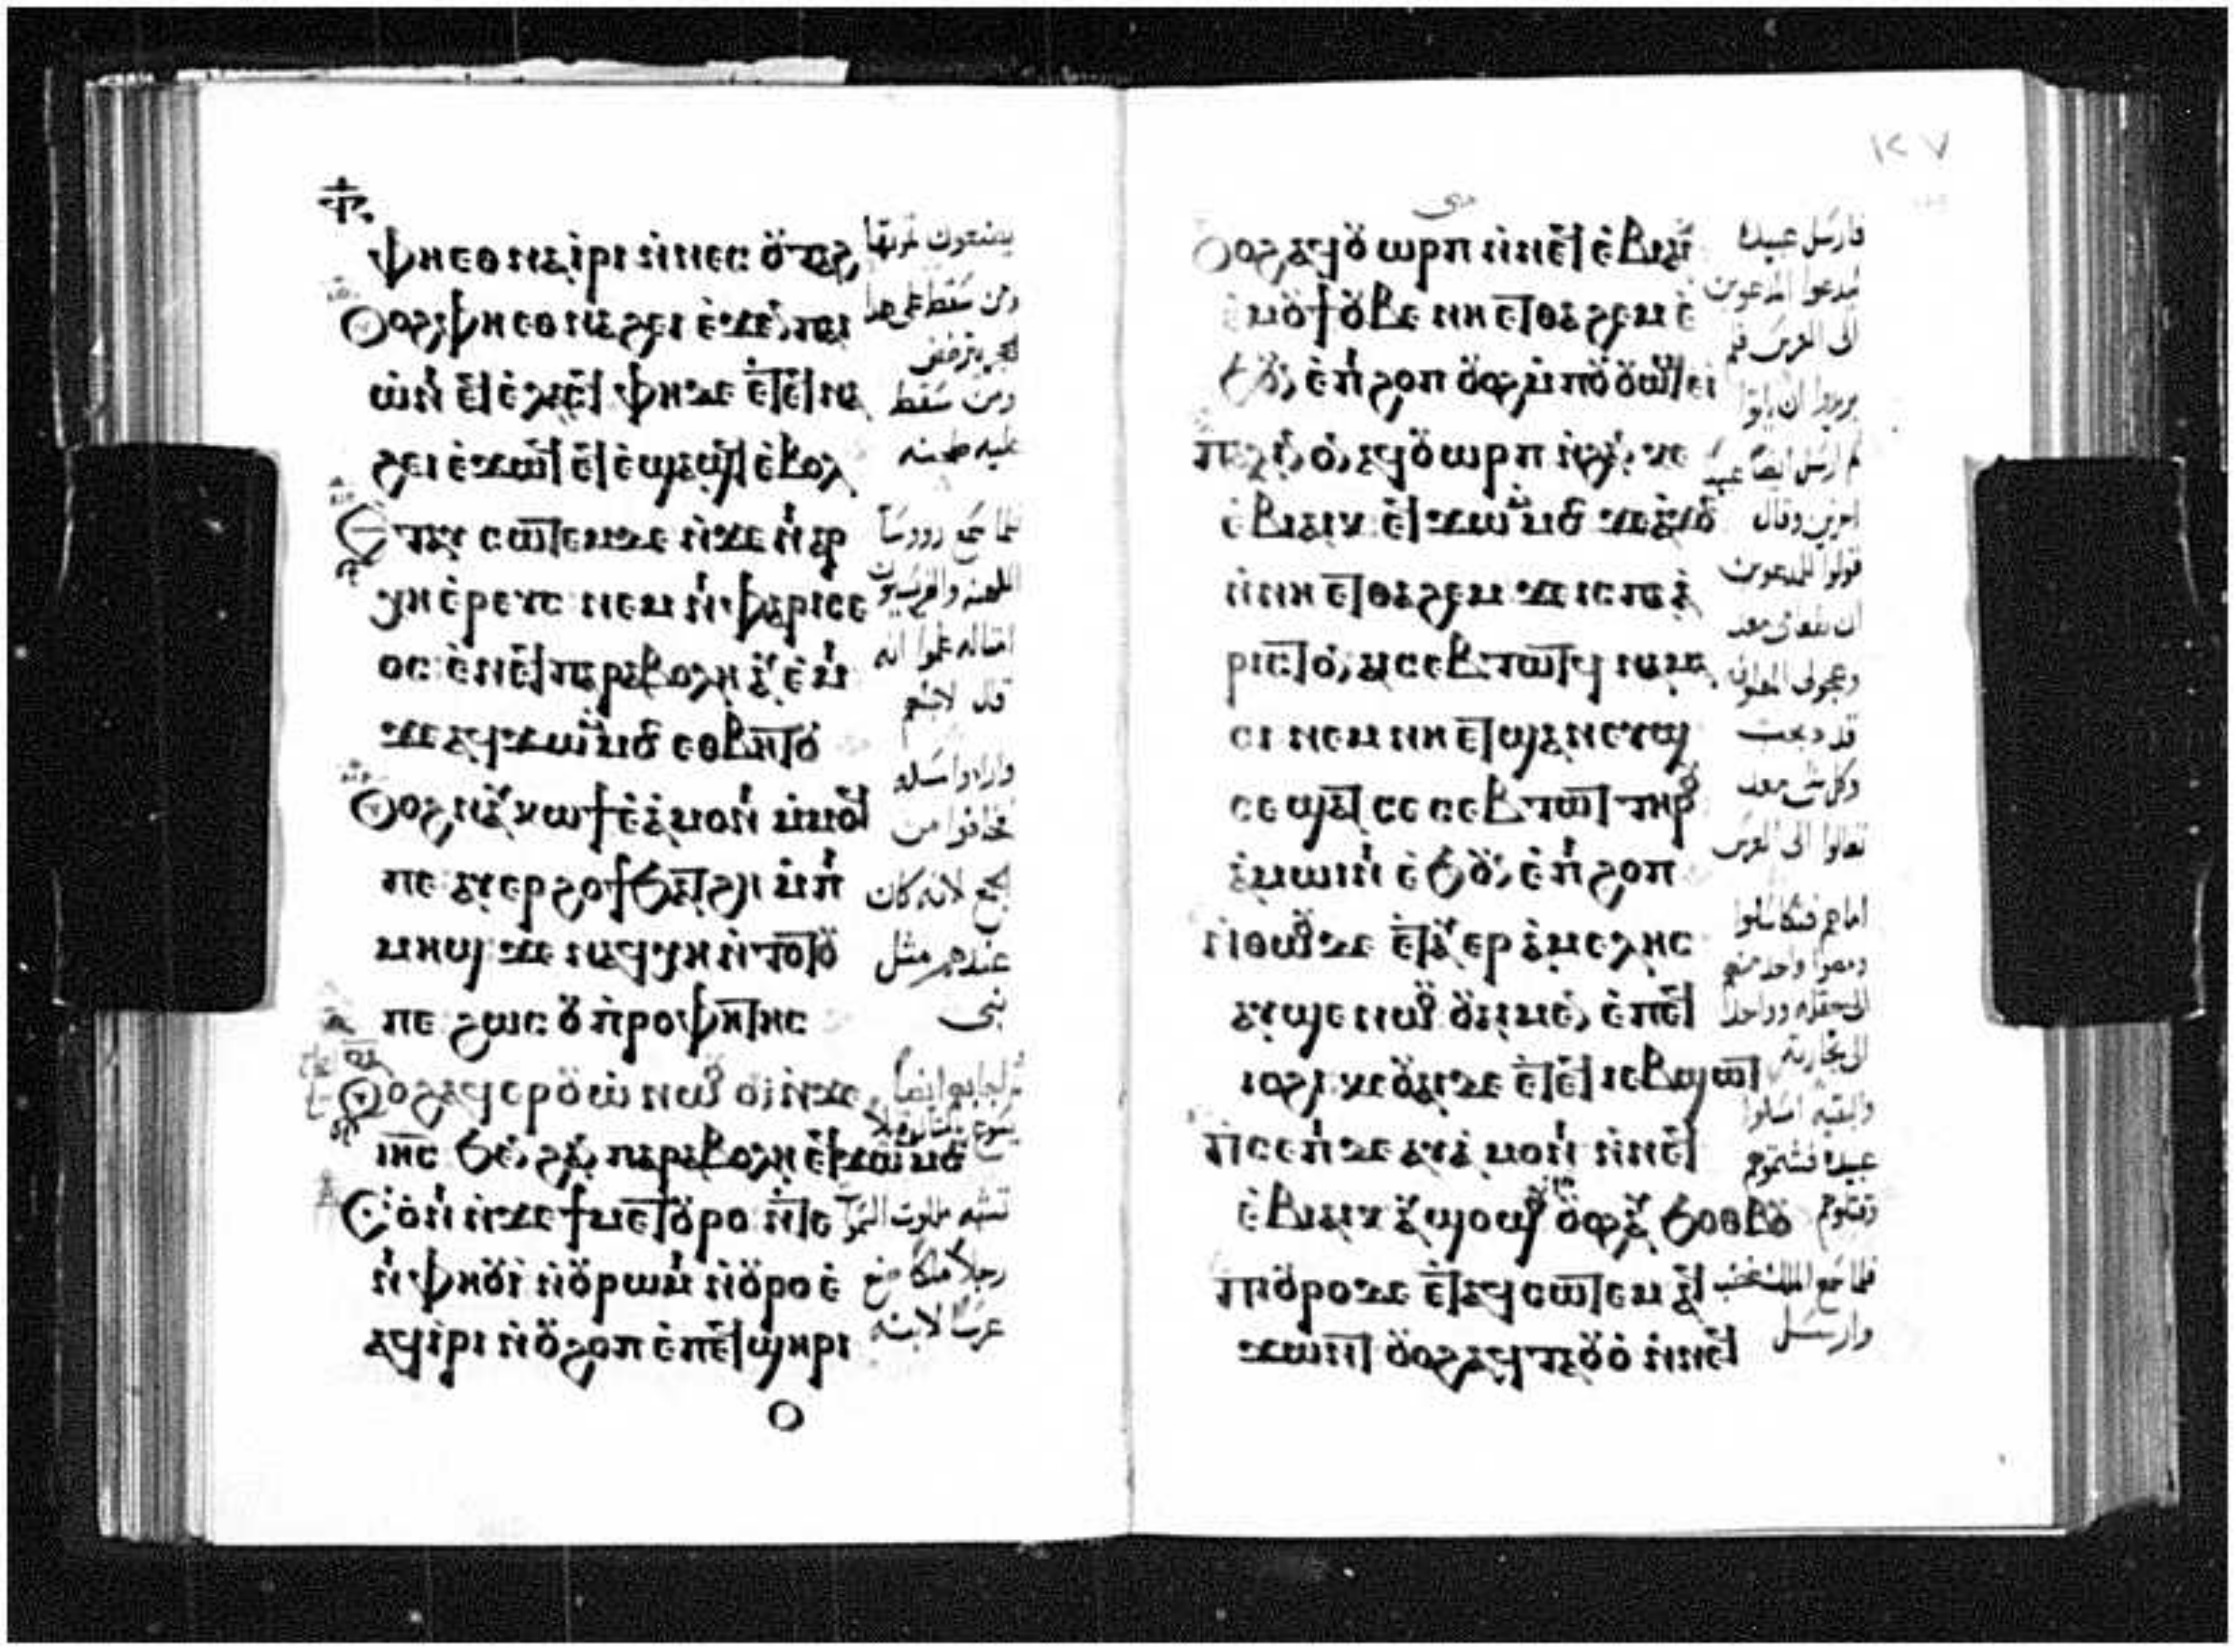 ⲫⲏⲉⲑⲛⲁⲓⲣⲓ ⲛⲛⲉⲥ ⲟⲩⲧⲁϩ
ⲟⲩⲟϩ ⲫⲏⲉⲑⲛⲁϩⲉⲓ ⲉϫⲉⲛ ⲡⲁⲓ
ⲱⲛⲓ ⲉϥⲉⲗⲁⲥϥ ⲫⲏ ⲇⲉ ⲉⲧⲉϥⲛⲁ
ϩⲉⲓ ⲉϫⲱϥ ⲉϥⲉϣⲁϣϥ ⲉⲃⲟⲗ
ⲉⲧⲁⲩ ⲥⲱⲧⲉⲙ ⲇⲉ ⲛϫⲉ ⲛⲓⲁⲣ
ⲭⲏⲉⲣⲉⲩⲥ ⲛⲉⲙ ⲛⲓⲫⲁⲣⲓⲥⲉ
ⲟⲥ ⲉⲛⲉϥⲡⲁⲣⲁⲃⲟⲗⲏ ⲁⲩⲉⲙⲓ
ϫⲉ ⲁϥϫⲱ ⲙⲙⲟⲥ ⲉⲑⲃⲏⲧⲟⲩ
ⲟⲩⲟϩ ⲛⲁⲩⲕⲱϯ ⲉⲁⲙⲟⲛⲓ ⲙⲙⲟϥ
ⲡⲉ ⲁⲩⲉⲣϩⲟϯ ϧⲁⲧϩⲏ ⲙⲡⲓ
ⲙⲏϣ ϫⲉ ⲛⲁϥⲭⲏ ⲛⲧⲟⲧⲟⲩ
ⲡⲉ ϩⲱⲥ ⲟⲩⲡⲣⲟⲫⲏⲧⲏⲥ
ⲟⲩⲟϩ ⲁϥⲉⲣⲟⲩⲱ ⲛⲱⲟⲩ ⲟⲛ ⲛϫⲉ
ⲓⲏⲥ ϧⲉⲛ ϩⲁⲛ ⲡⲁⲣⲁⲃⲟⲗⲏ ⲉϥϫⲱ ⲙⲙⲟⲥ
ⲥⲟⲛⲓ ⲛϫⲉ ϯⲙⲉⲧⲟⲩⲣⲟ ⲛⲧⲉ
ⲛⲓⲫⲏⲟⲩⲓ ⲛⲟⲩⲣⲱⲙⲓ ⲛⲟⲩⲣⲟ ⲉ
ⲁϥⲓⲣⲓ ⲛⲟⲩϩⲟⲡ ⲉⲡⲉϥϣⲏⲣⲓ
يصنعون ثمرتها
ومن سقط على هذا
الحجر يترضض
ومن سقط
عليه طحنه
فلما سمع رووسا
الكهنه والفريسيون
امثاله علموا انه
قال لاجلهم
وارادوا مسكه
فخافوا من
الجمع لانه كان
عندهم مثل
نبى
تشبه ملكوت السموات
رجلا ملكا صنع
عرسا لابنه
١٢٧
ⲟⲩⲟϩ ⲁϥⲟⲩⲱⲣⲡ ⲛⲛⲉϥⲉⲃⲓⲁⲓⲕ
ⲉⲙⲟⲩϯ ⲟⲩⲃⲉ ⲛⲏ ⲉⲧⲑⲁϩⲉⲙ ⲉ
ϧⲟⲩⲛ ⲉⲡⲓϩⲟⲡ ⲟⲩⲟϩ ⲙⲡⲟⲩⲟⲩⲱϣ ⲉⲓ
ⲡⲁⲗⲓⲛ ⲟⲛ ⲁϥⲟⲩⲱⲣⲡ ⲛϩⲁⲛⲕⲉ
ⲉⲃⲓⲁⲓⲕ ⲉϥϫⲱ ⲙⲙⲟⲥ ϫⲉ ⲁϫⲟⲥ
ⲛⲛⲏ ⲉⲧⲑⲁϩⲉⲙ ϫⲉ ⲓⲥ ⲡⲁⲁ
ⲣⲓⲥⲧⲟⲛ ϥⲥⲉⲃⲧⲱⲧϥ ⲛⲁⲙⲁ
ⲥⲓ ⲛⲉⲙ ⲛⲏ ⲉⲧϣⲁⲛⲉⲩϣ
ⲥⲉ ϣⲁⲧ ⲥⲉ ⲥⲉⲃⲧⲱⲧ ⲧⲏⲣⲟⲩ
ⲁⲙⲱⲓⲛⲓ ⲉϧⲟⲩⲛ ⲉⲡⲓϩⲟⲡ
ⲛⲑⲱⲟⲩ ⲇⲉ ⲉⲧⲁⲩⲉⲣ ⲁⲙⲉⲗⲏⲥ
ⲁⲩϣⲉ ⲛⲱⲟⲩ ⲟⲩⲁⲓ ⲙⲉⲛ ⲉⲡⲉϥ
ⲓⲟϩⲓ ⲕⲉⲟⲩⲁⲓ ⲇⲉ ⲉⲧⲉϥⲓⲉⲃϣⲱⲧ
ⲡⲥⲉⲡⲓ ⲇⲉ ⲁⲩⲁⲙⲟⲛⲓ ⲛⲛⲉϥ
ⲉⲃⲓⲁⲓⲕ ⲁⲩϣⲟϣⲟⲩ ⲟⲩⲟϩ ⲁⲩϧⲟⲑⲃⲟⲩ
ⲡⲓⲟⲩⲣⲟ ⲇⲉ ⲉⲧⲁϥⲥⲱⲧⲉⲙ ⲁϥ
ϫⲱⲛⲧ ⲟⲩⲟϩ ⲁϥⲧⲁⲟⲩⲟ ⲛⲛⲉϥ
فارسل عبيده
ليدعوا المدعوين
الى العرس فلم
يريدوا ان ياتوا
ثم ارسل ايضا عبيدا
اخرين وقال
قولوا للمدعوين
وعجولى المعلوفه
قد دبحت
وكل شى معد
تعالوا الى العرس
اما هم فتكاسلوا
ومضوا واحد منهم
الى حقله وواحد
الى تجارته
والبقيه امسكوا
عبيده فشتموهم
وقتلوهم
فلما سمع الملك غضب
وارسل